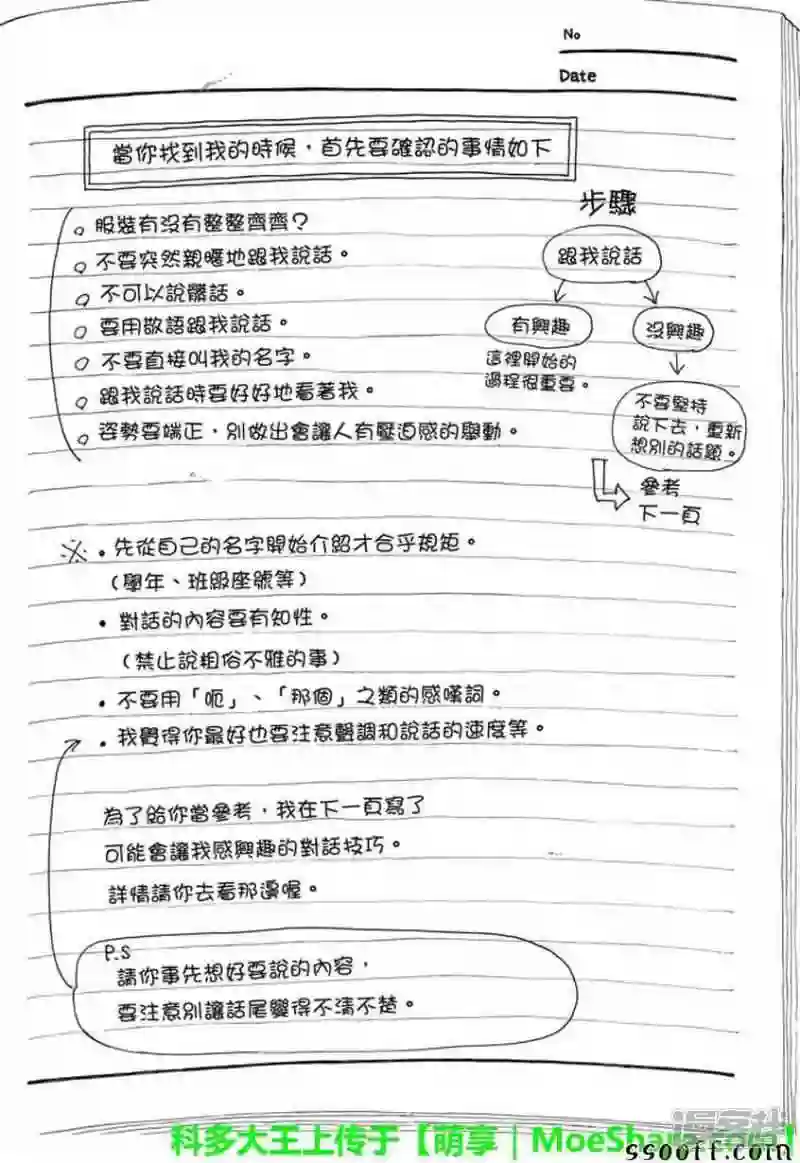 No
Date
當你找到我的時候，首先要確認的事情如下
。服裝有沒有整整齊齊？
。不要突然親暱地跟我說話。
。不可以說髒話。
。要用敬語跟我說話。
。不要直接叫我的名字。
。跟我說話時要好好地看著我。
。姿勢要端正，別做出會讓人有壓迫感的舉動。
步驟
跟我說話
有興趣
這裡開始的
過程很重要。
沒興趣
不要堅持
說下去，重新
想別的話題。
參考
下一頁
※・先從自己的名字開始介紹才合乎規矩。
（學年、班級座號等）
・對話的內容要有知性。
（禁止說粗俗不雅的事）
・不要用「呃」、「那個」之類的感嘆詞。
・我覺得你最好也要注意聲調和說話的速度等。
為了給你當參考，我在下一頁寫了
可能會讓我感興趣的對話技巧。
詳情請你去看那邊喔。
P.S
請你事先想好要說的內容，
要注意別讓話尾變得不清不楚。
科多大王上传于【萌享｜MoeShare